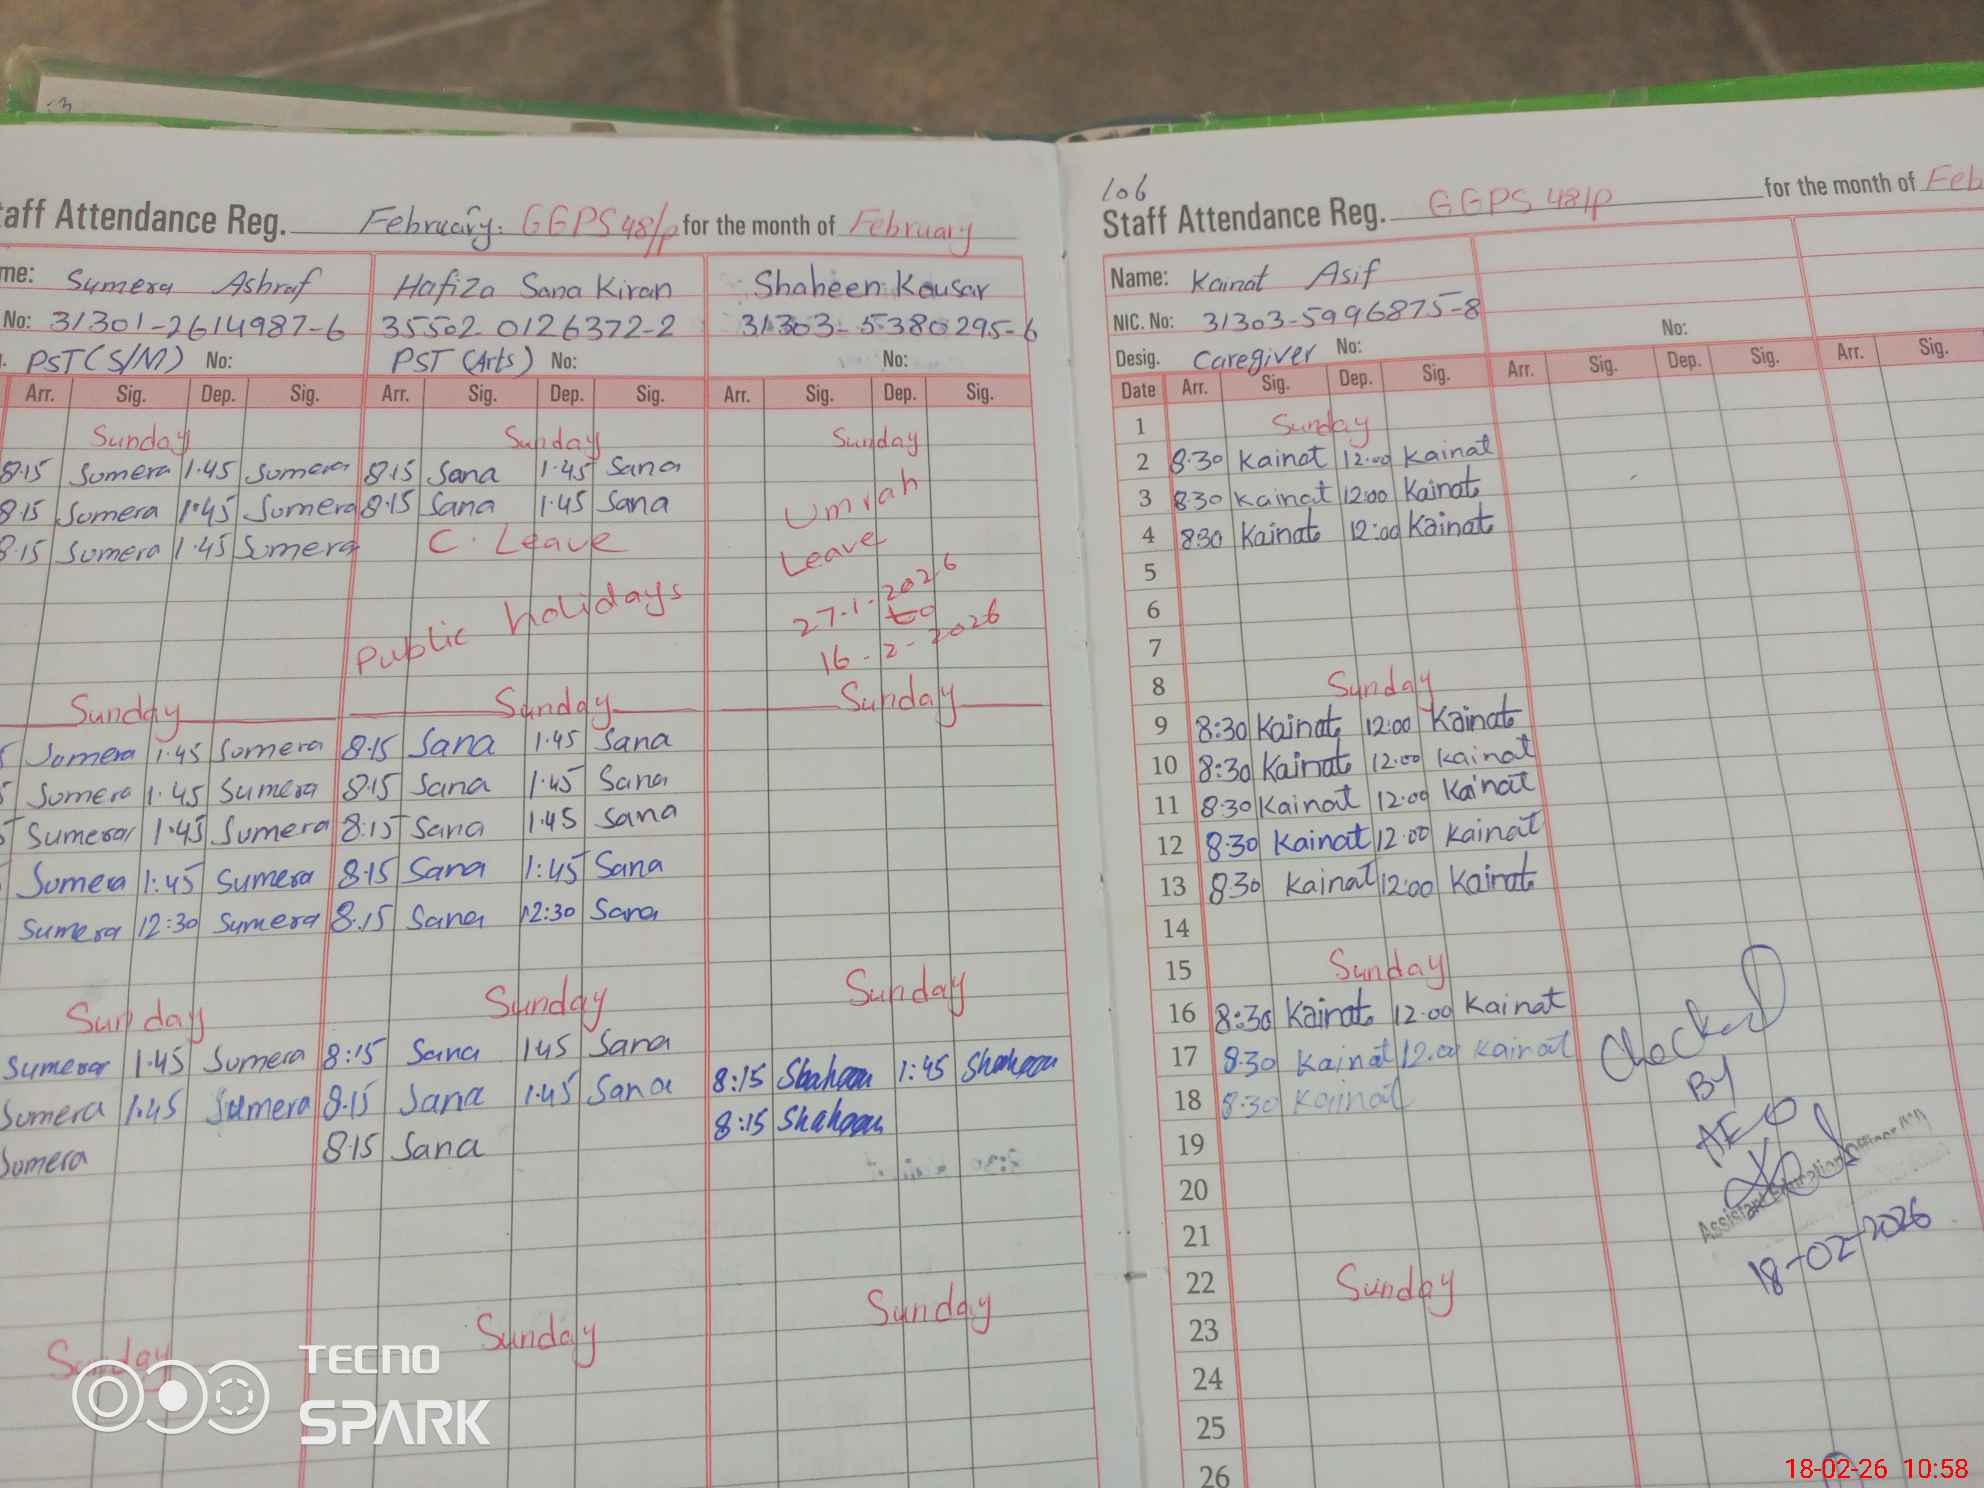 Staff Attendance Reg. February. GGPS 48/P for the month of February
me: Sumera Ashraf Hafiza Sana Kiran Shaheen Kousar
No: 31301-2614987-6 35502-0126372-2 31303-5380295-6
PST (S/M) No: PST (Arts) No: No:
Arr. Sig. Dep. Sig. Arr. Sig. Dep. Sig. Arr. Sig. Dep. Sig.
Sunday Sunday Sunday
8:15 Sumera 1:45 Sumera 8:15 Sana 1:45 Sana
8:15 Sumera 1:45 Sumera 8:15 Sana 1:45 Sana Umrah
8:15 Sumera 1:45 Sumera C. Leave Leave
Public holidays 27-1-2026
to
16-2-2026
Sunday Sunday Sunday
Sumera 1:45 Sumera 8:15 Sana 1:45 Sana
Sumera 1:45 Sumera 8:15 Sana 1:45 Sana
Sumera 1:45 Sumera 8:15 Sana 1:45 Sana
Sumera 1:45 Sumera 8:15 Sana 1:45 Sana
Sumera 12:30 Sumera 8:15 Sana 12:30 Sana
Sunday Sunday Sunday
Sumera 1:45 Sumera 8:15 Sana 1:45 Sana
Sumera 1:45 Sumera 8:15 Sana 1:45 Sana 8:15 Shaheen 1:45 Shaheen
Sumera 8:15 Sana 8:15 Shaheen
Sunday Sunday Sunday
106
Staff Attendance Reg. GGPS 48/P for the month of Feb
Name: Kainat Asif
NIC. No: 31303-5996875-8 No:
Desig. Caregiver No:
Date Arr. Sig. Dep. Sig. Arr. Sig. Dep. Sig. Arr. Sig.
1 Sunday
2 8:30 Kainat 12:00 Kainat
3 8:30 Kainat 12:00 Kainat
4 8:30 Kainat 12:00 Kainat
5
6
7
8 Sunday
9 8:30 Kainat 12:00 Kainat
10 8:30 Kainat 12:00 Kainat
11 8:30 Kainat 12:00 Kainat
12 8:30 Kainat 12:00 Kainat
13 8:30 Kainat 12:00 Kainat
14
15 Sunday
16 8:30 Kainat 12:00 Kainat
17 8:30 Kainat 12:00 Kainat
18 8:30 Kainat
19
20
21
22 Sunday
23
24
25
26
Checked
By
AEO
Assistant Education Officer
18-02-2026
TECNO
SPARK
18-02-26 10:58